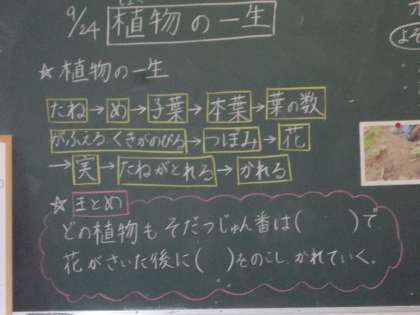 9/24 植物の一生
☆植物の一生
たね→め→子葉→本葉→葉の数
がふえる・くきがのびる→つぼみ→花
→実→たねがとれる→かれる
☆まとめ
どの植物もそだつじゅん番は(　　)で
花がさいた後に(　)をのこし かれていく。